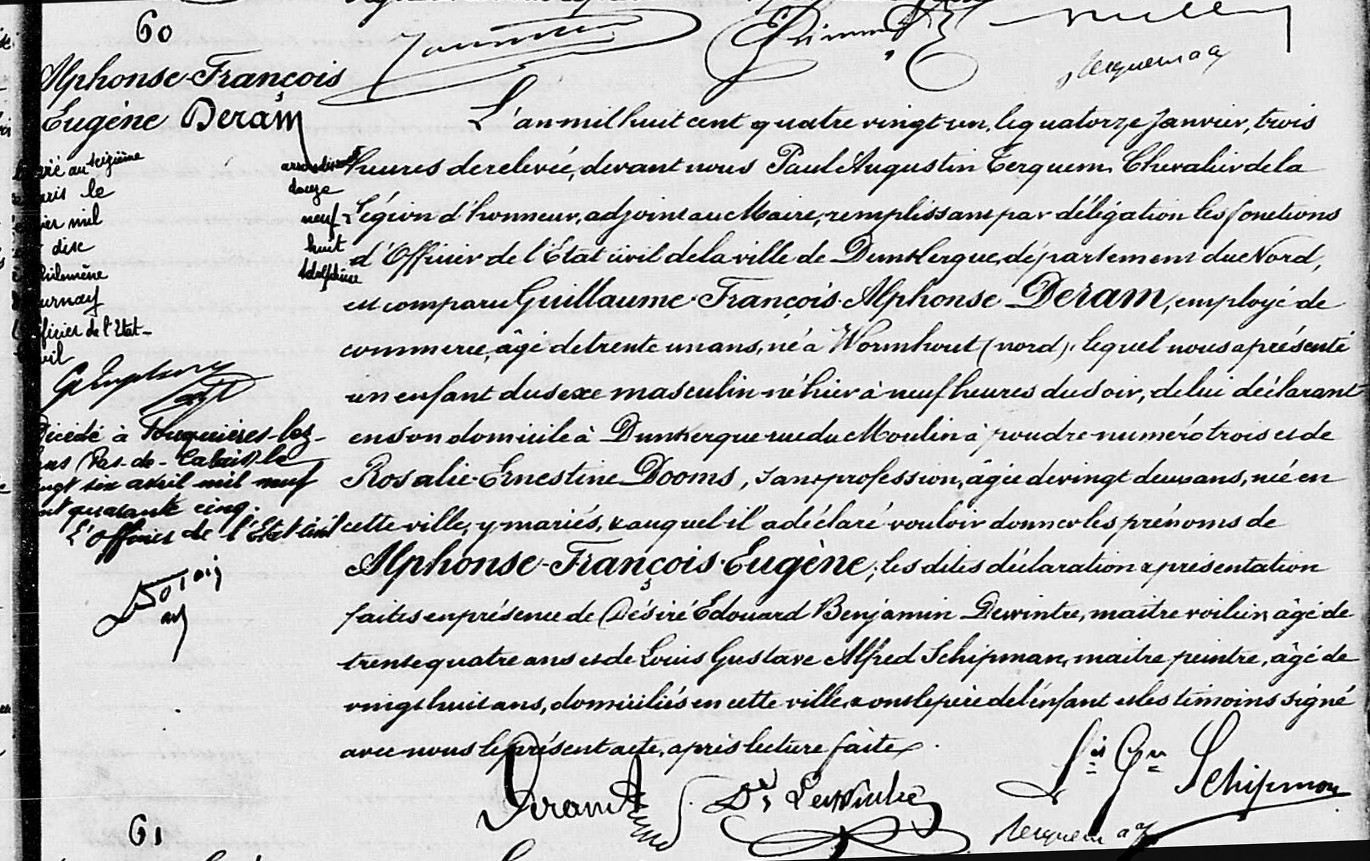 60
Alphonse-François
Eugène Deram
au seizième arrondissement
le douze
mil neuf
dix huit
Philomène Adolphine
L'officier de l'Etat-
civil
Décédé à Fouquières-lez-
Lens Pas-de-Calais le
vingt six avril mil neuf
cent quarante cinq.
L'Officier de l'Etat civil
L'an mil huit cent quatre vingt un, le quatorze Janvier, trois
heures de relevée, devant nous Paul Augustin Terquem, Chevalier de la
Légion d'honneur, adjoint au Maire, remplissant par délégation les fonctions
d'Officier de l'Etat civil de la ville de Dunkerque, département du Nord,
est comparu Guillaume-François-Alphonse Deram, employé de
commerce, âgé de trente un ans, né à Wormhout (nord), lequel nous a présenté
un enfant du sexe masculin né hier à neuf heures du soir, de lui déclarant
en son domicile à Dunkerque rue du Moulin à poudre numéro trois et de
Rosalie-Ernestine Dooms, sans profession, âgée de vingt deux ans, née en
cette ville, y mariés, & auquel il a déclaré vouloir donner les prénoms de
Alphonse-François-Eugène; les dites déclaration & présentation
faites en présence de Désiré Edouard Benjamin Dewintre, maître voilier, âgé de
trente quatre ans et de Louis Gustave Alfred Schipman, maître peintre, âgé de
vingt huit ans, domiciliés en cette ville & ont le père de l'enfant et les témoins signé
avec nous le présent acte, après lecture faite.
Deram
Dé Dewintre
Ls Gve Schipman
Terquem a
61